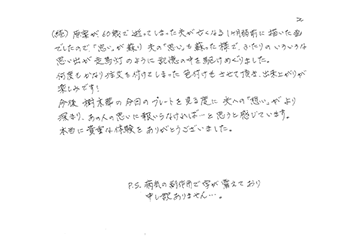 (続) 原案が60歳で逝ってしまった夫が亡くなる1ヶ月前に描いた画
でしたので「思い」が蘇り 夫の「思い」も蘇った様で、ふたりのいろいろな
思い出が走馬灯のように記憶の中を駆けめぐりました。
何度もかなり注文も付けてしまった色付けもさせて頂き、出来上がりが
楽しみです!
今後 樹木葬の今回のプレートを見る度に夫への「想い」がより
深まり、あの人の思いに報いらなければ…と思うと感じています。
本当に貴重な体験をありがとうございました。
P.S. 病気の副作用で字が震えており
申し訳ありません…。